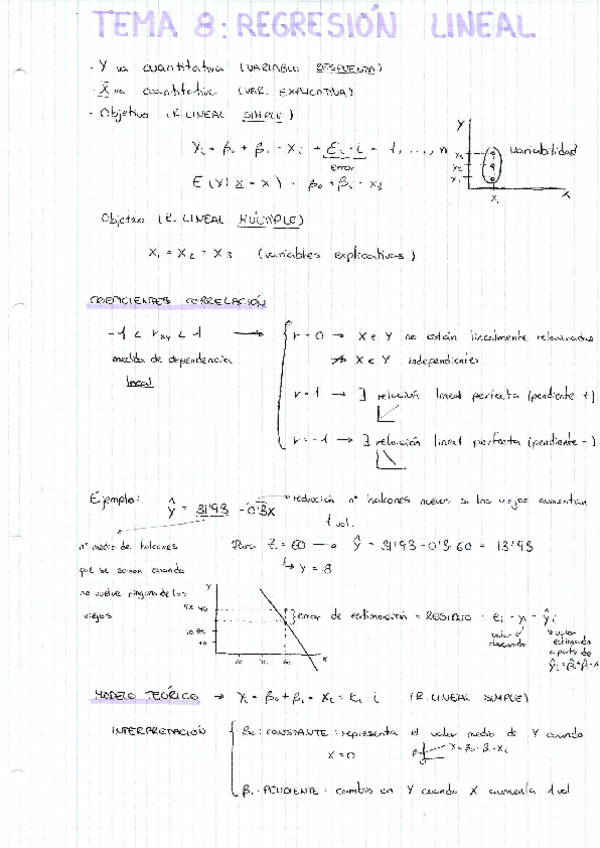 TEMA 8: REGRESIÓN LINEAL
· Y va cuantitativa (VARIABLE RESPUESTA)
· X va cuantitativa (VAR. EXPLICATIVA)
- Objetivo (R. LINEAL SIMPLE)
Yi = β0 + β1 · Xi + Ei · i = 1, ..., n
error
E (Y | X = x) = β0 + β1 · x
Y
variabilidad
X
Objetivo (R. LINEAL MÚLTIPLE)
X1 = X2 = X3 (variables explicativas)
COEFICIENTES CORRELACIÓN
-1 < rxy < 1 → r = 0 → X e Y no están linealmente relacionadas
medida de dependencia
X e Y independientes
lineal
r = 1 → ∃ relación lineal perfecta (pendiente +)
r = -1 → ∃ relación lineal perfecta (pendiente -)
Ejemplo: ŷ = 31'93 - 0'3x
reducción nº halcones nuevos si los viejos aumentan
1 ud.
nº medio de halcones
Para = 60 → ŷ = 31'93 - 0'3·60 = 13'93
que se suman cuando
y = 8
no vuelve ninguno de los
viejos
error de estimación = RESIDUO = ei = yi - ŷi
valor observado
valor estimado a partir de
MODELO TEÓRICO → Yi = β0 + β1 = Xi = Ei i (R. LINEAL SIMPLE)
INTERPRETACIÓN
β0: CONSTANTE: representa el valor medio de Y cuando
X = 0
β1: PENDIENTE: cambio en Y cuando X aumenta 1 ud